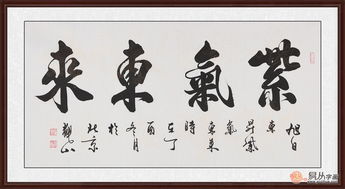 紫氣東來
旭日
東
昇紫
氣
東来
時
在丁
酉
冬月
於
北京
易从字画